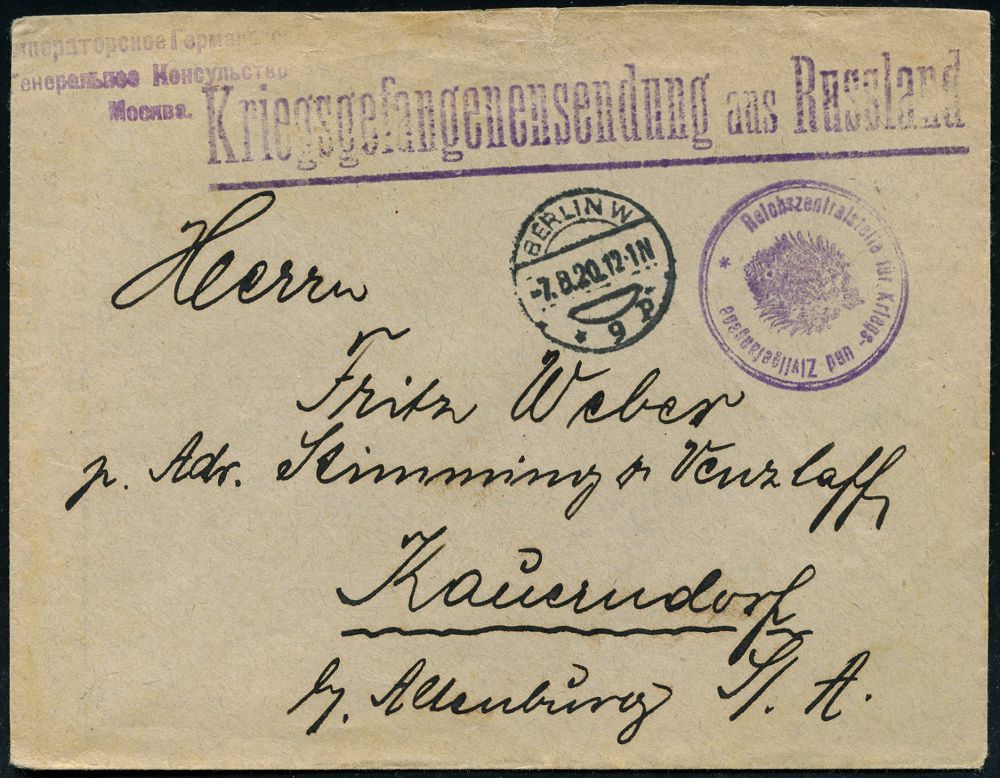 Императорское Германское
Генеральное Консульство
Москва.
Kriegsgefangenensendung aus Russland
BERLIN W
-7.8.20.12-1N
* 9 P *
* Reichszentralstelle für Kriegs- und Zivilgefangene
Herrn
Fritz Weber
p. Adr. Stimming & Venzlaff
Kauerndorf
b/. Altenburg S/. A.